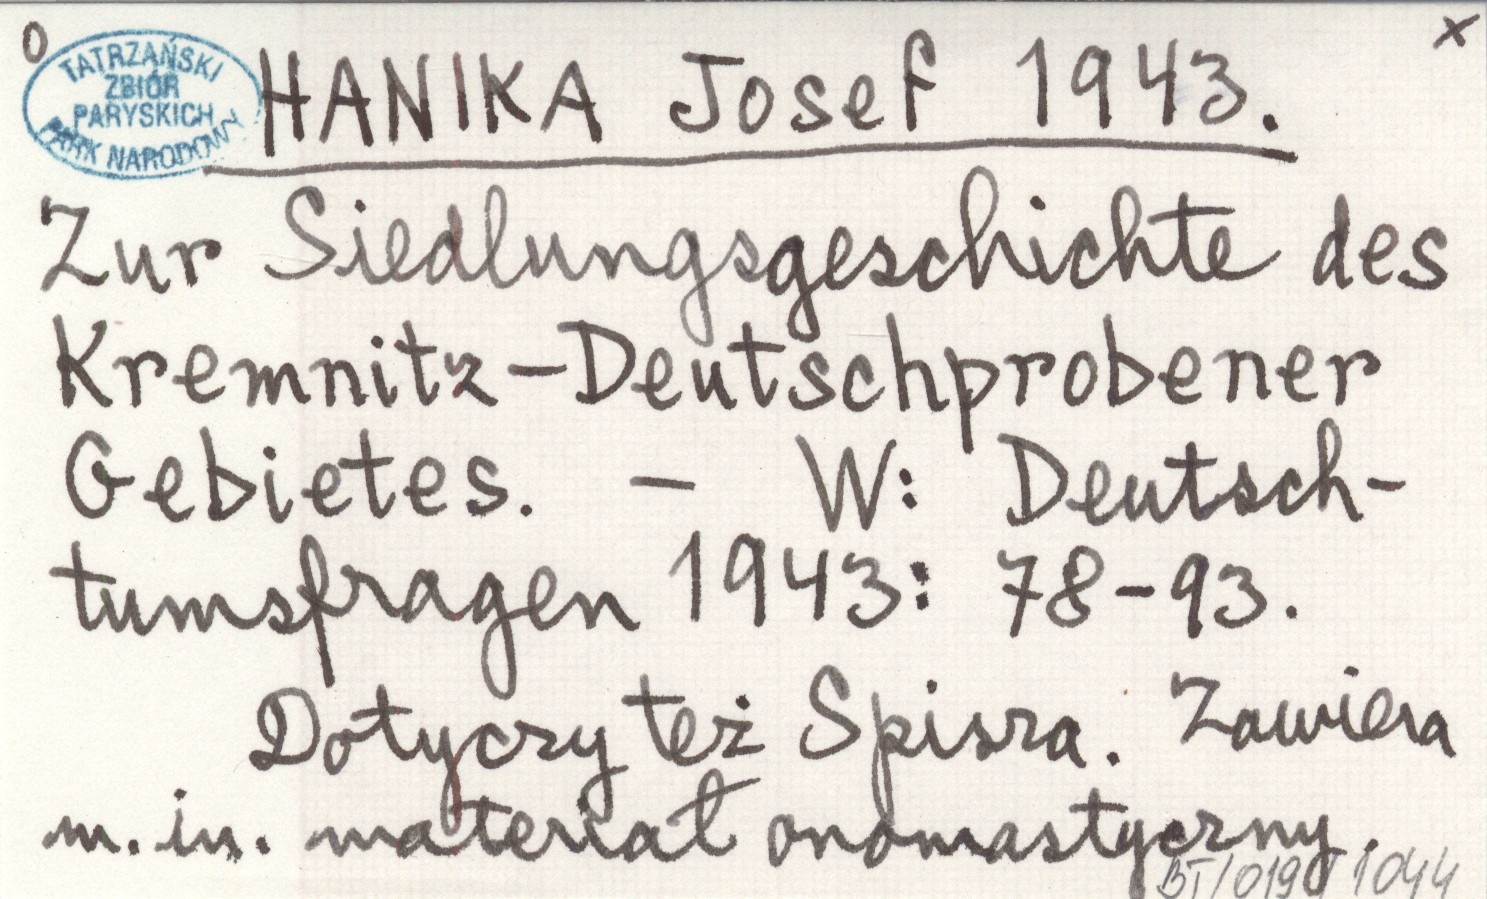 O
x
TATRZAŃSKI
ZBIÓR
PARYSKICH
PARK NARODOWY
HANIKA Josef 1943.
Zur Siedlungsgeschichte des
Kremnitz-Deutschprobener
Gebietes. - W: Deutsch-
tumsfragen 1943: 78-93.
Dotyczy też Spisza. Zawiera
m. in. materiał onomastyczny.
BT/019/1044